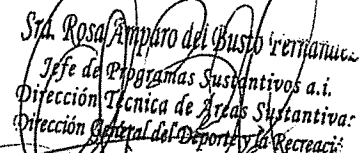 Sra. Rosa Amparo del Busto Fernández
Jefe de Programas Sustantivos a.i.
Dirección Técnica de Áreas Sustantivas
Dirección General del Deporte y la Recreació